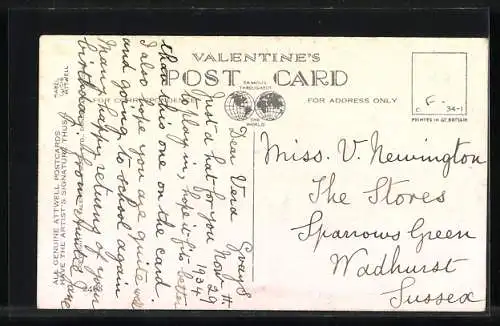 VALENTINE'S
POST CARD
FAMOUS THROUGHOUT
THE WORLD
FOR CORRESPONDENCE
FOR ADDRESS ONLY
C F. 34-1
PRINTED IN GT. BRITAIN
MABEL LUCIE ATTWELL
ALL GENUINE ATTWELL POSTCARDS
HAVE THE ARTIST'S SIGNATURE THUS
Grays
Nov. 29th
1934
Dear Vera
Just a hat for you
to play in, hope it fits better
than this one on the card.
I also hope you are quite well
and going to school again
Many happy returns of your
birthday. from Auntie
Miss. V. Newington
The Stores
Sparrows Green
Wadhurst
Sussex